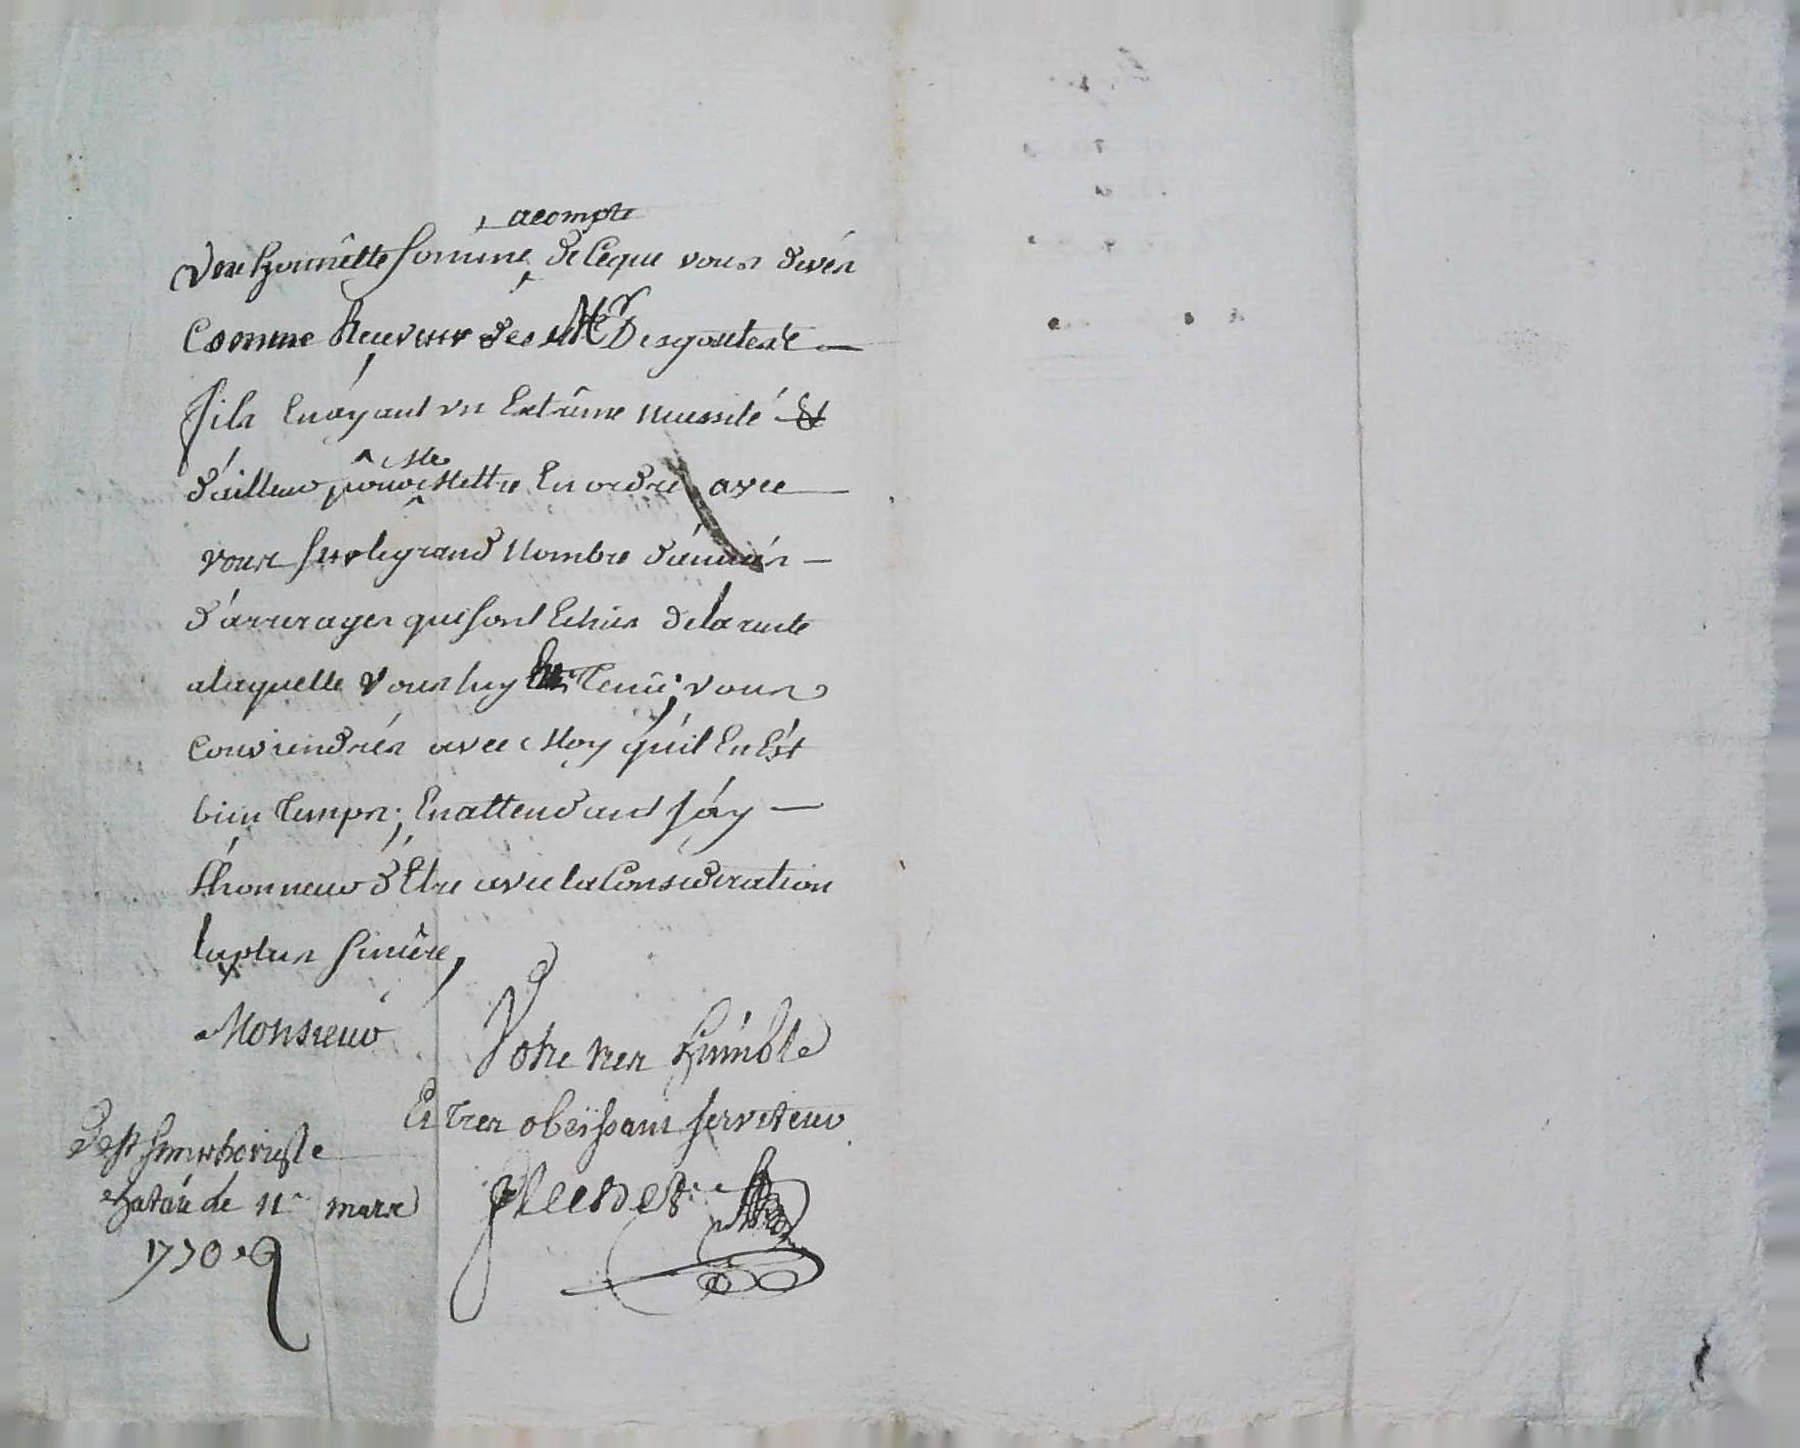 acompte
Une honnêtte somme, de ceque vous devés
Comme Receveur des Mrs Desgouttes &
fils Enayant un Extrême necessité &
d'ailleur pour Mettre En ordre avec
vous sur le grand Nombre d'années
d'arrerages qui sont Echües dela rente
alaquelle vous luy Etes Tenû; vous
conviendrés avec Moy qu'il En Est
bien Temps; En attendant j'ay
l'honneur d'Etre avec la Consideration
la plus sincère,
Monsieur
Votre tres humble
Et Tres obeissant serviteur
De St Simphorien
ce 11e mars
1770